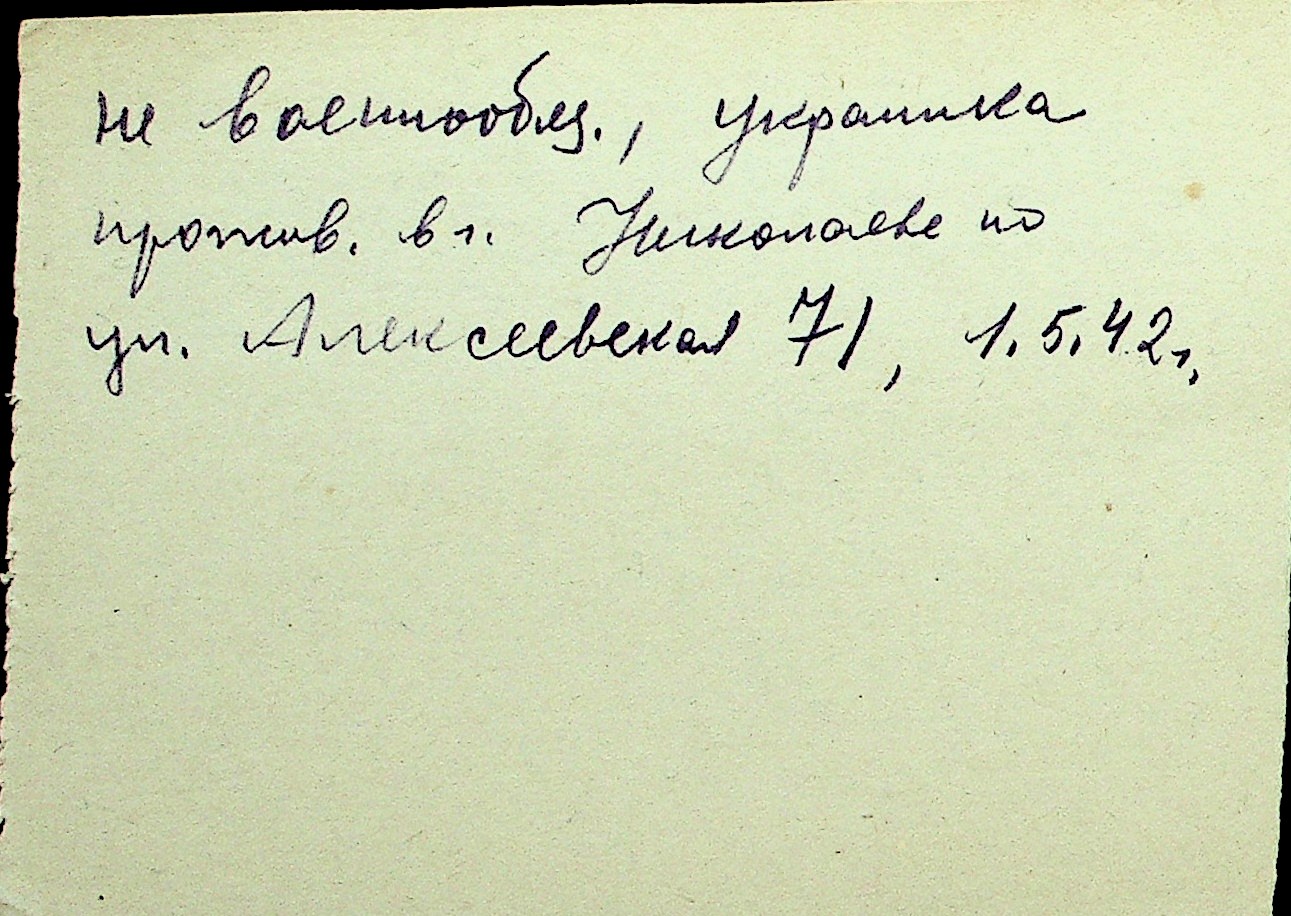 не военнообяз., украинка
прожив. в г. Николаеве по
ул. Алексеевская 71, 1.5.42г.